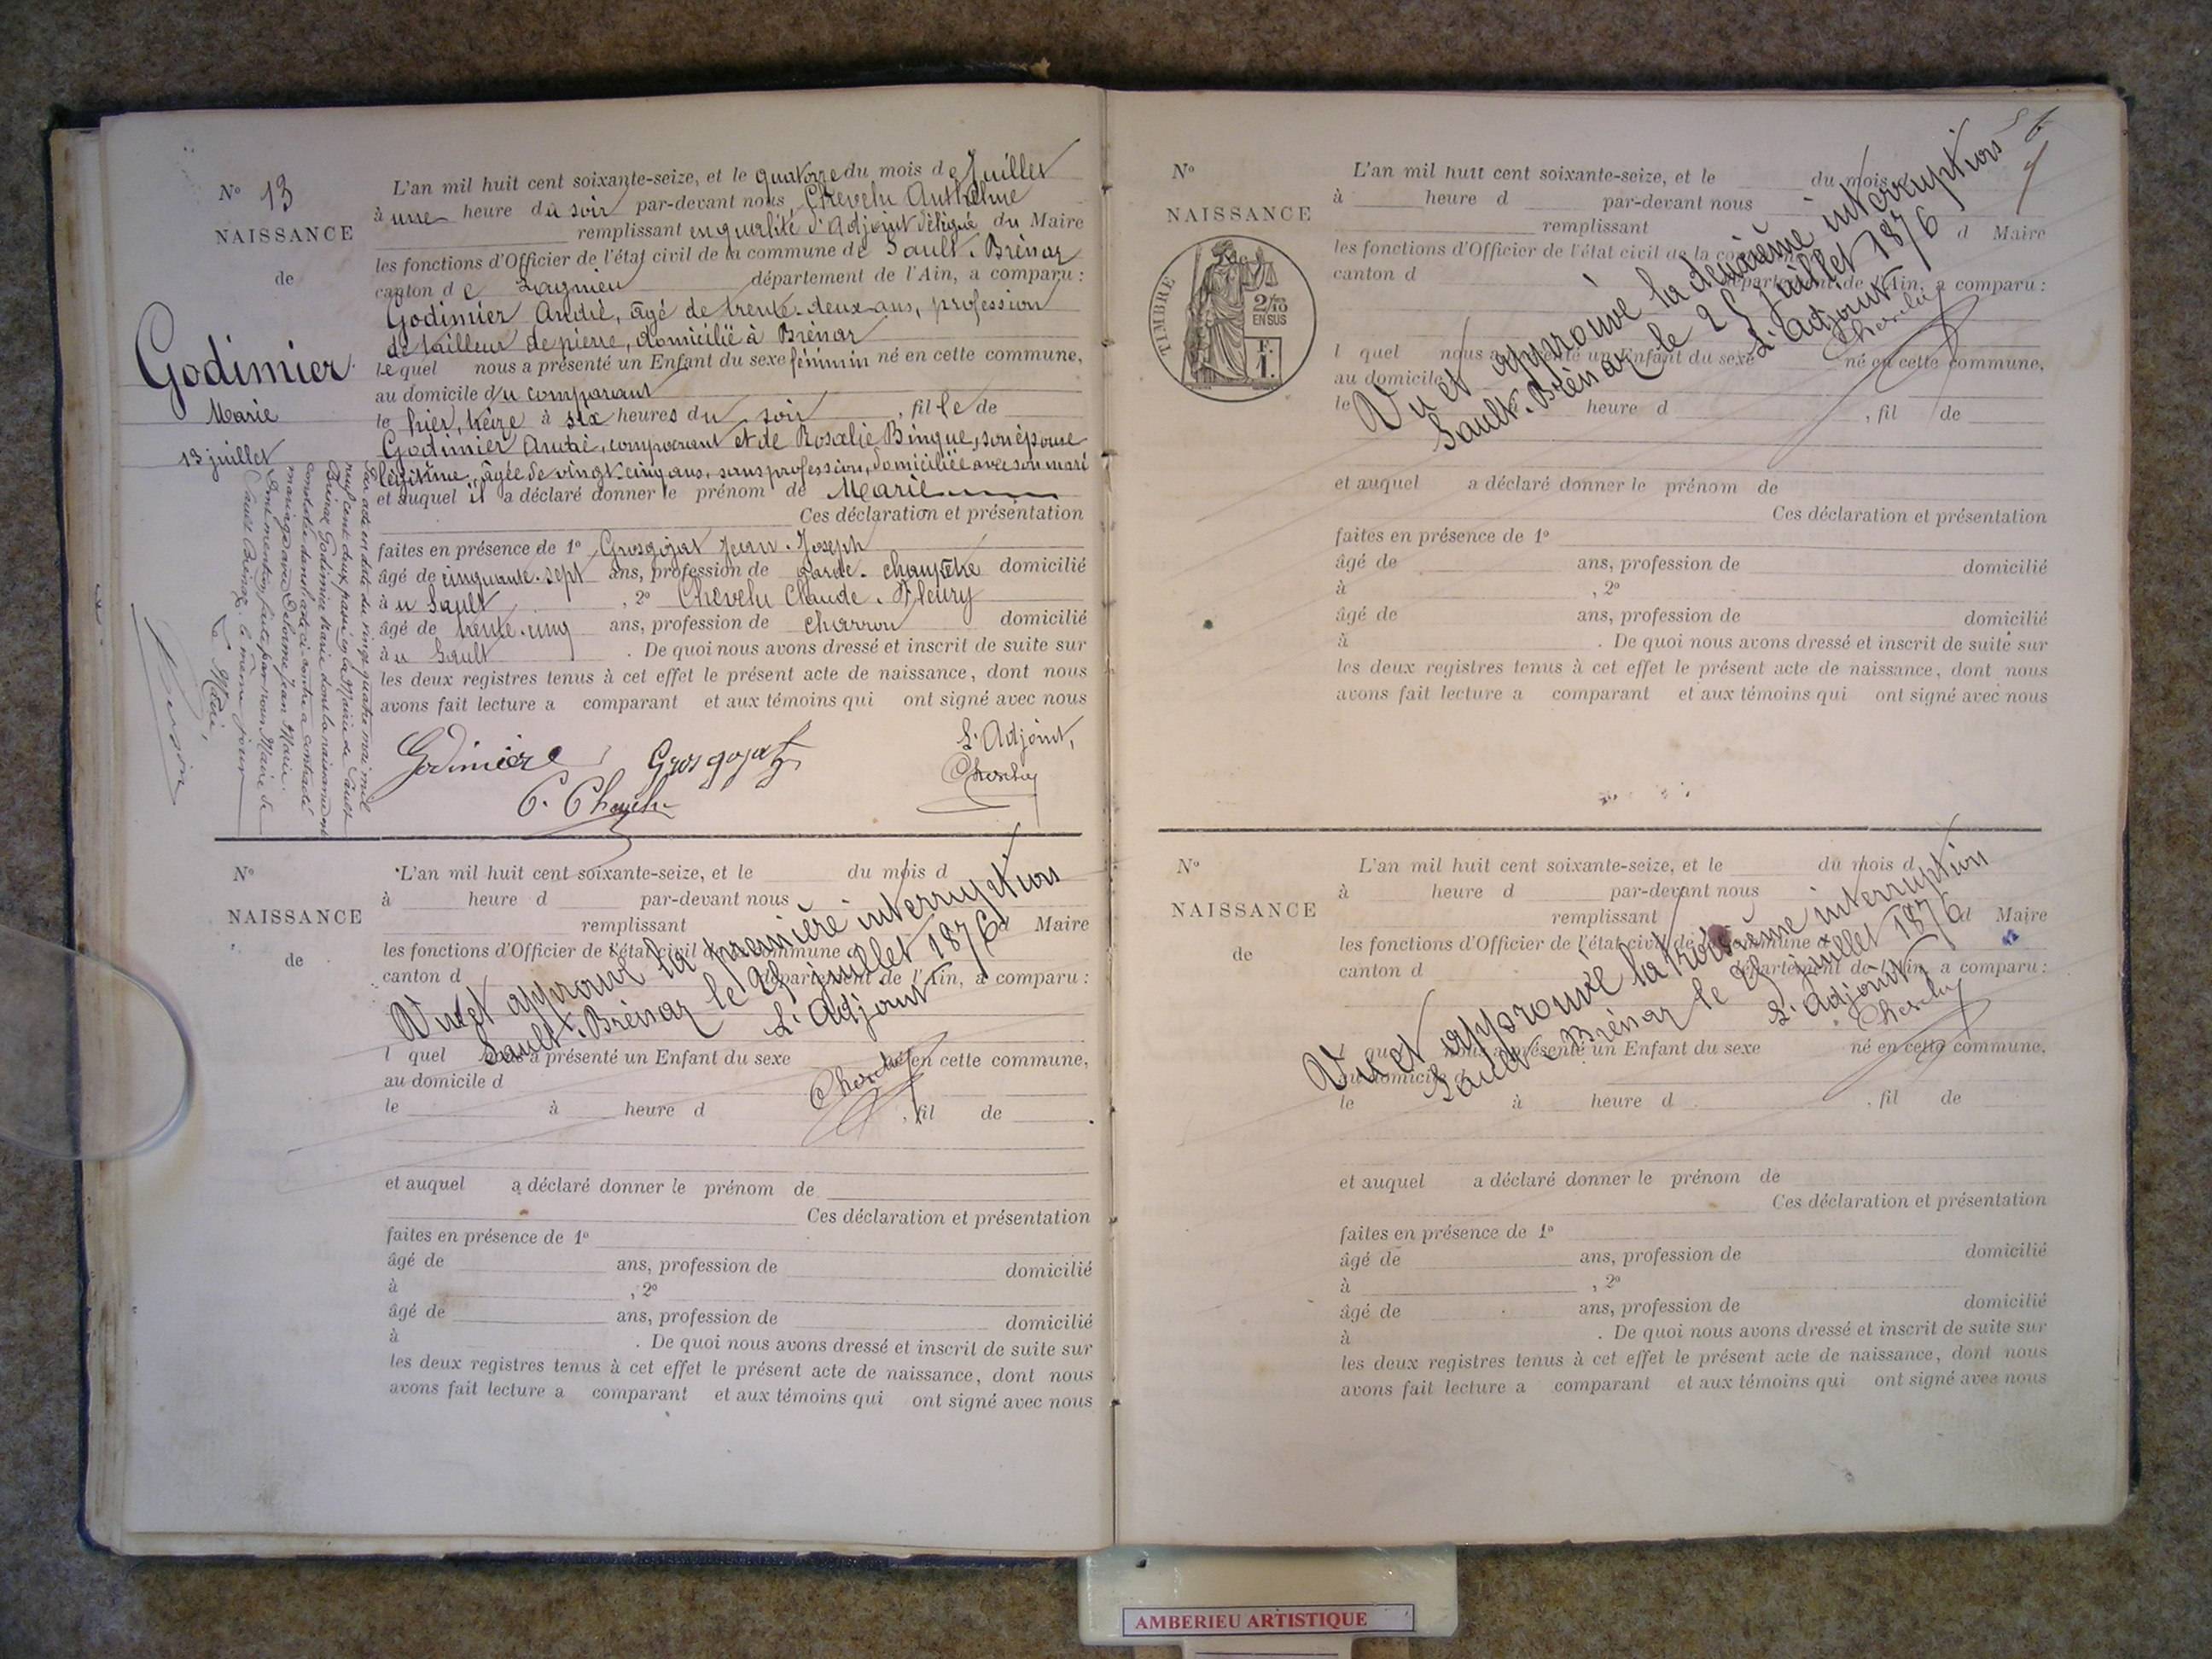 N° 13
NAISSANCE
de
Godimier
Marie
13 juillet
L'an mil huit cent soixante-seize, et le quatorze du mois de Juillet
à une heure du soir par-devant nous, Chevelu Anthelme
remplissant en qualité d'Adjoint délégué du Maire
les fonctions d'Officier de l'état civil de la commune de Sault-Brénaz
canton de Lagnieu département de l'Ain, a comparu :
Godimier André, âgé de trente-deux ans, profession
de tailleur de pierre, domicilié à Brénaz
lequel nous a présenté un Enfant du sexe féminin né en cette commune,
au domicile du comparant
le hier, treize à six heures du soir, fille de
Godimier André, comparant et de Rosalie Binque, son épouse
légitime, âgée de vingt-cinq ans, sans profession, domiciliée avec son mari
et auquel il a déclaré donner le prénom de Marie
Ces déclaration et présentation
faites en présence de 1° Grosgojat Jean-Joseph
âgé de cinquante-sept ans, profession de garde-champêtre domicilié
à u Sault, 2° Chevelu Claude-Fleury
âgé de trente-cinq ans, profession de charron domicilié
à u Sault. De quoi nous avons dressé et inscrit de suite sur
les deux registres tenus à cet effet le présent acte de naissance, dont nous
avons fait lecture a comparant et aux témoins qui ont signé avec nous
Godimière Grosgojat L'Adjoint,
C. Chevelu Chevelu
Par acte en date du vingt quatre mai mil
neuf cent deux passé à la Mairie de Sault
Brénaz Godimier Marie dont la naissance est
constatée dans l'acte ci-contre a contracté
mariage avec Delorme Jean Marie.
Dont mention faite par nous Maire de
Sault Brénaz, le même jour
Le Maire,
N°
NAISSANCE
de
L'an mil huit cent soixante-seize, et le du mois d
à heure d par-devant nous
remplissant d Maire
les fonctions d'Officier de l'état civil de la commune d
canton d département de l'Ain, a comparu :
l quel nous a présenté un Enfant du sexe né en cette commune,
au domicile d
le à heure d , fil de
et auquel a déclaré donner le prénom de
Ces déclaration et présentation
faites en présence de 1°
âgé de ans, profession de domicilié
à , 2°
âgé de ans, profession de domicilié
à . De quoi nous avons dressé et inscrit de suite sur
les deux registres tenus à cet effet le présent acte de naissance, dont nous
avons fait lecture a comparant et aux témoins qui ont signé avec nous
Vu et approuvé la première interruption
Sault-Brénaz le 25 juillet 1876
L'Adjoint
Chevelu
N°
NAISSANCE
TIMBRE
2/10
EN SUS
F.
1.
L'an mil huit cent soixante-seize, et le du mois
à heure d par-devant nous
remplissant d Maire
les fonctions d'Officier de l'état civil de la commune
canton d département de l'Ain, a comparu :
l quel nous a présenté un Enfant du sexe né en cette commune,
au domicile
le heure d , fil de
et auquel a déclaré donner le prénom de
Ces déclaration et présentation
faites en présence de 1°
âgé de ans, profession de domicilié
à , 2°
âgé de ans, profession de domicilié
à . De quoi nous avons dressé et inscrit de suite sur
les deux registres tenus à cet effet le présent acte de naissance, dont nous
avons fait lecture a comparant et aux témoins qui ont signé avec nous
Vu et approuvé la deuxième interruption
Sault-Brénaz le 25 Juillet 1876
L'Adjoint
Chevelu
N°
NAISSANCE
de
L'an mil huit cent soixante-seize, et le du mois d
à heure d par-devant nous
remplissant d Maire
les fonctions d'Officier de l'état civil de la commune d
canton d département de l'Ain, a comparu :
quel nous a présenté un Enfant du sexe né en cette commune,
au domicile d
le à heure d , fil de
et auquel a déclaré donner le prénom de
Ces déclaration et présentation
faites en présence de 1°
âgé de ans, profession de domicilié
à , 2°
âgé de ans, profession de domicilié
à . De quoi nous avons dressé et inscrit de suite sur
les deux registres tenus à cet effet le présent acte de naissance, dont nous
avons fait lecture a comparant et aux témoins qui ont signé avec nous
Vu et approuvé la troisième interruption
Sault-Brénaz le 25 juillet 1876
L'Adjoint
Chevelu
AMBERIEU ARTISTIQUE